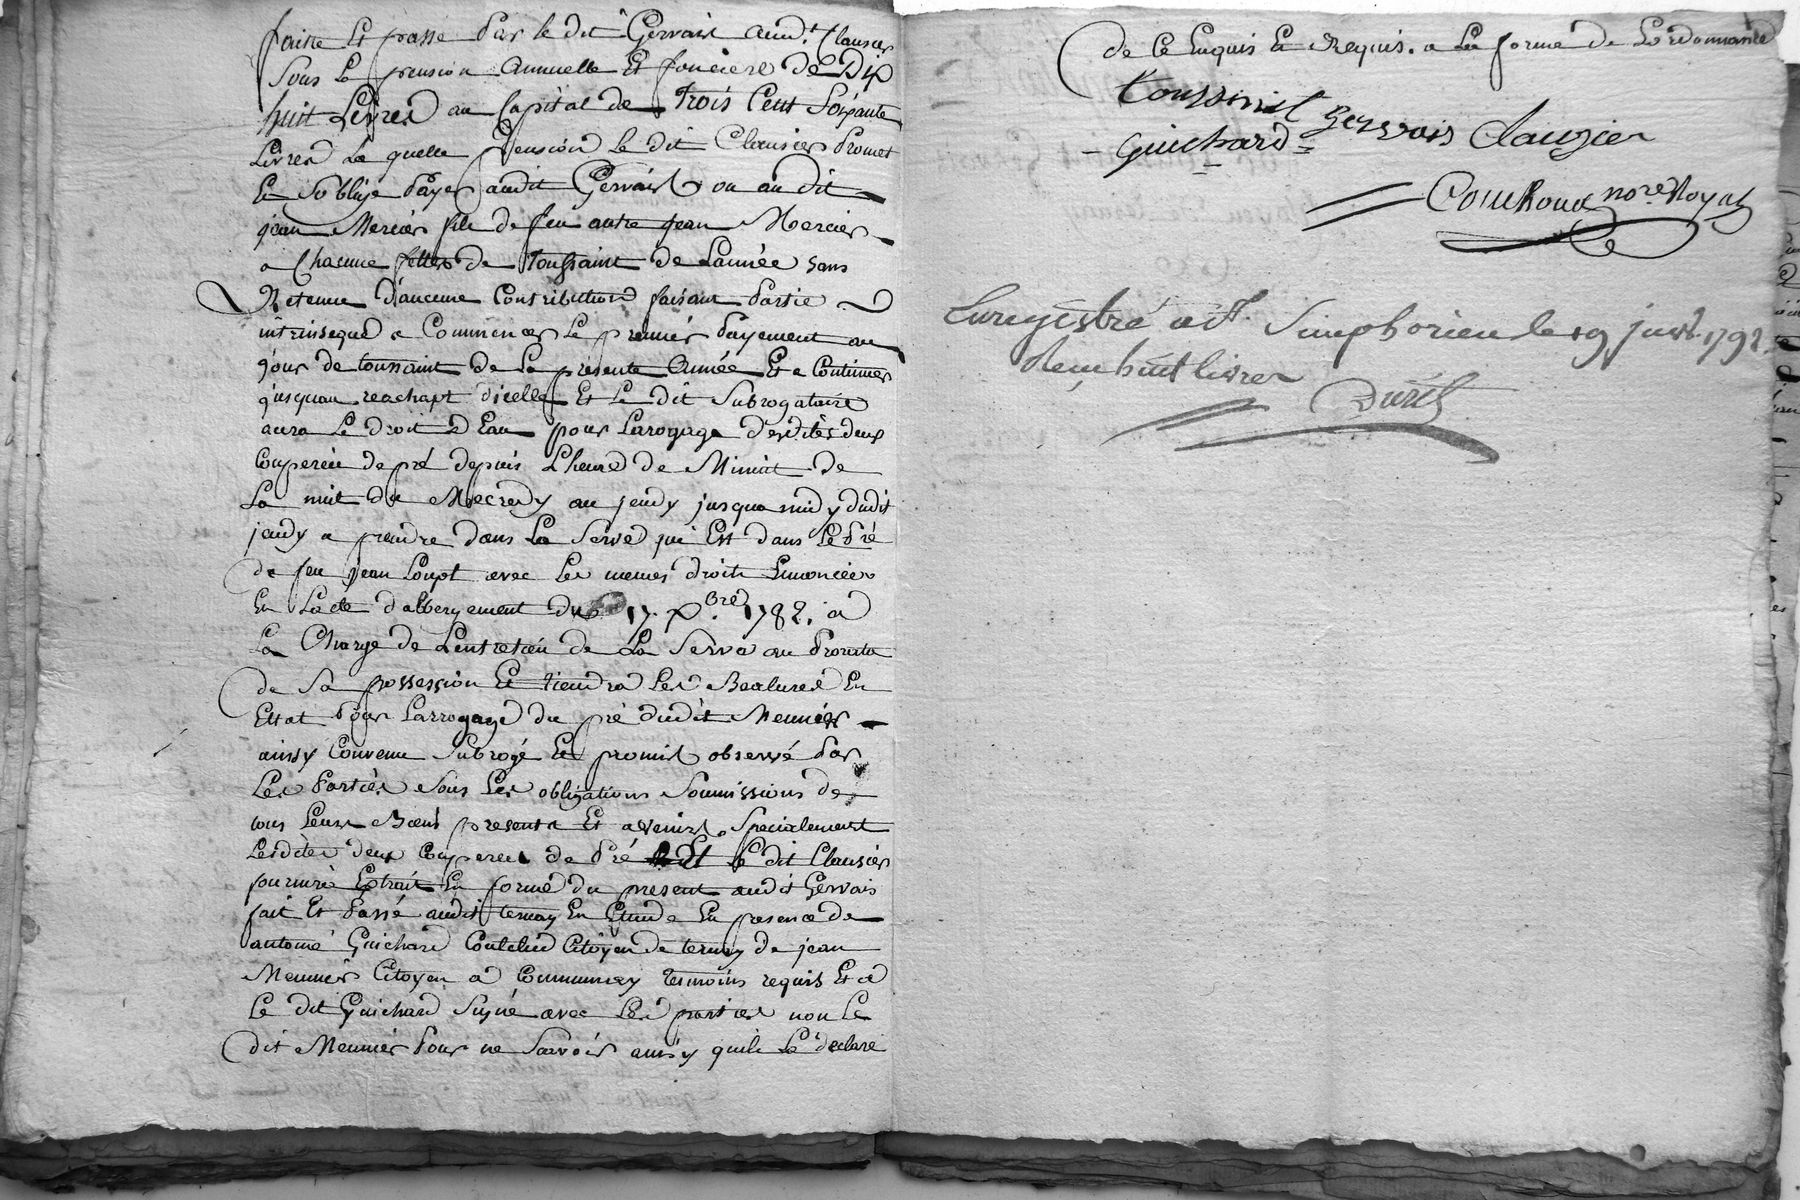 faitte Et passé par le dit Gervais aud.t Clausier
sous La pension annuelle Et fonciere de Dix
huit Livres au Capital de Trois Cent Soixante
Livres La quelle pension le dit Clausier Promet
Et soblige payer audit Gervais ou au dit
jean Mercier fils de feu autre jean Mercier
a Chacune fette de Toussaint de Lannée sans
Retenue d'aucune Contribution faisant Partie
intrinseque a Commencer Le premier payement au
jour de toussaint de La presente Année Et a Continuer
jusquau reachapt dicelle Et Le dit Subrogataire
aura Le droit d'Eau pour Larogage desdites deux
Couperées de pré depuis Lheure de Minuit de
La nuit du Mecredy au jeudy jusqua midy dudit
jeudy a prendre dans La Serve qui Est dans Le Pré
de feu jean Loupt avec Les memes droits Enoncées
En Lacte dalbergement du 17. Xbre 1782. a
La Charge de Lentretien de La Serve au Prorata
de Sa possession Et tiendra Les Bealures En
Ettat pour Larrogage du pré dudit Meunier
ainsy Convenu Subrogé Et promis observé par
Les Parties sous Les obligations Soumissions de
tous Leurs Biens presents Et avenirs Specialement
Lesdites deux Couperées de Pré Et Le dit Clausier
fournira Extrait En forme du present audit Gervais
fait Et Passé audit ternay En Etude En presence de
antoine Guichard Citoyen de ternay de jean
Meunier Citoyen a Communay temoins requis Et a
Le dit Guichard Signé avec Les parties non Le
dit Meunier Pour ne Savoir ainsy quil La declaré
de Ce Enquis Et Requis. a La forme de Lordonnance
Toussaint Gervais Clauzier
Guichard
Couhoud no.re Royal
Enregistré a St Simphorien le 19 1792.
Recu huit livres